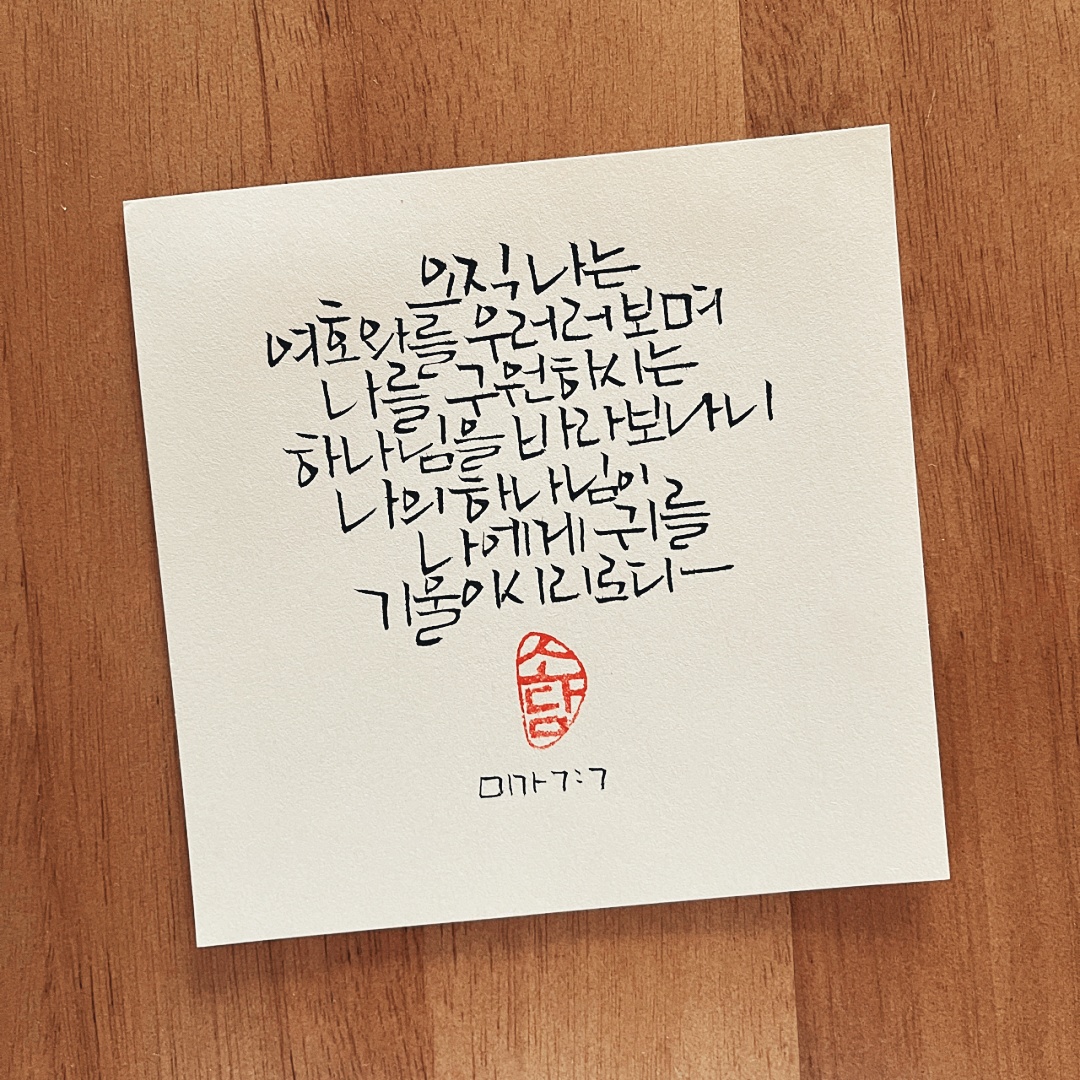 오직 나는
여호와를 우러러보며
나를 구원하시는
하나님을 바라보나니
나의 하나님이
나에게 귀를
기울이시리로다
소담
미가 7:7